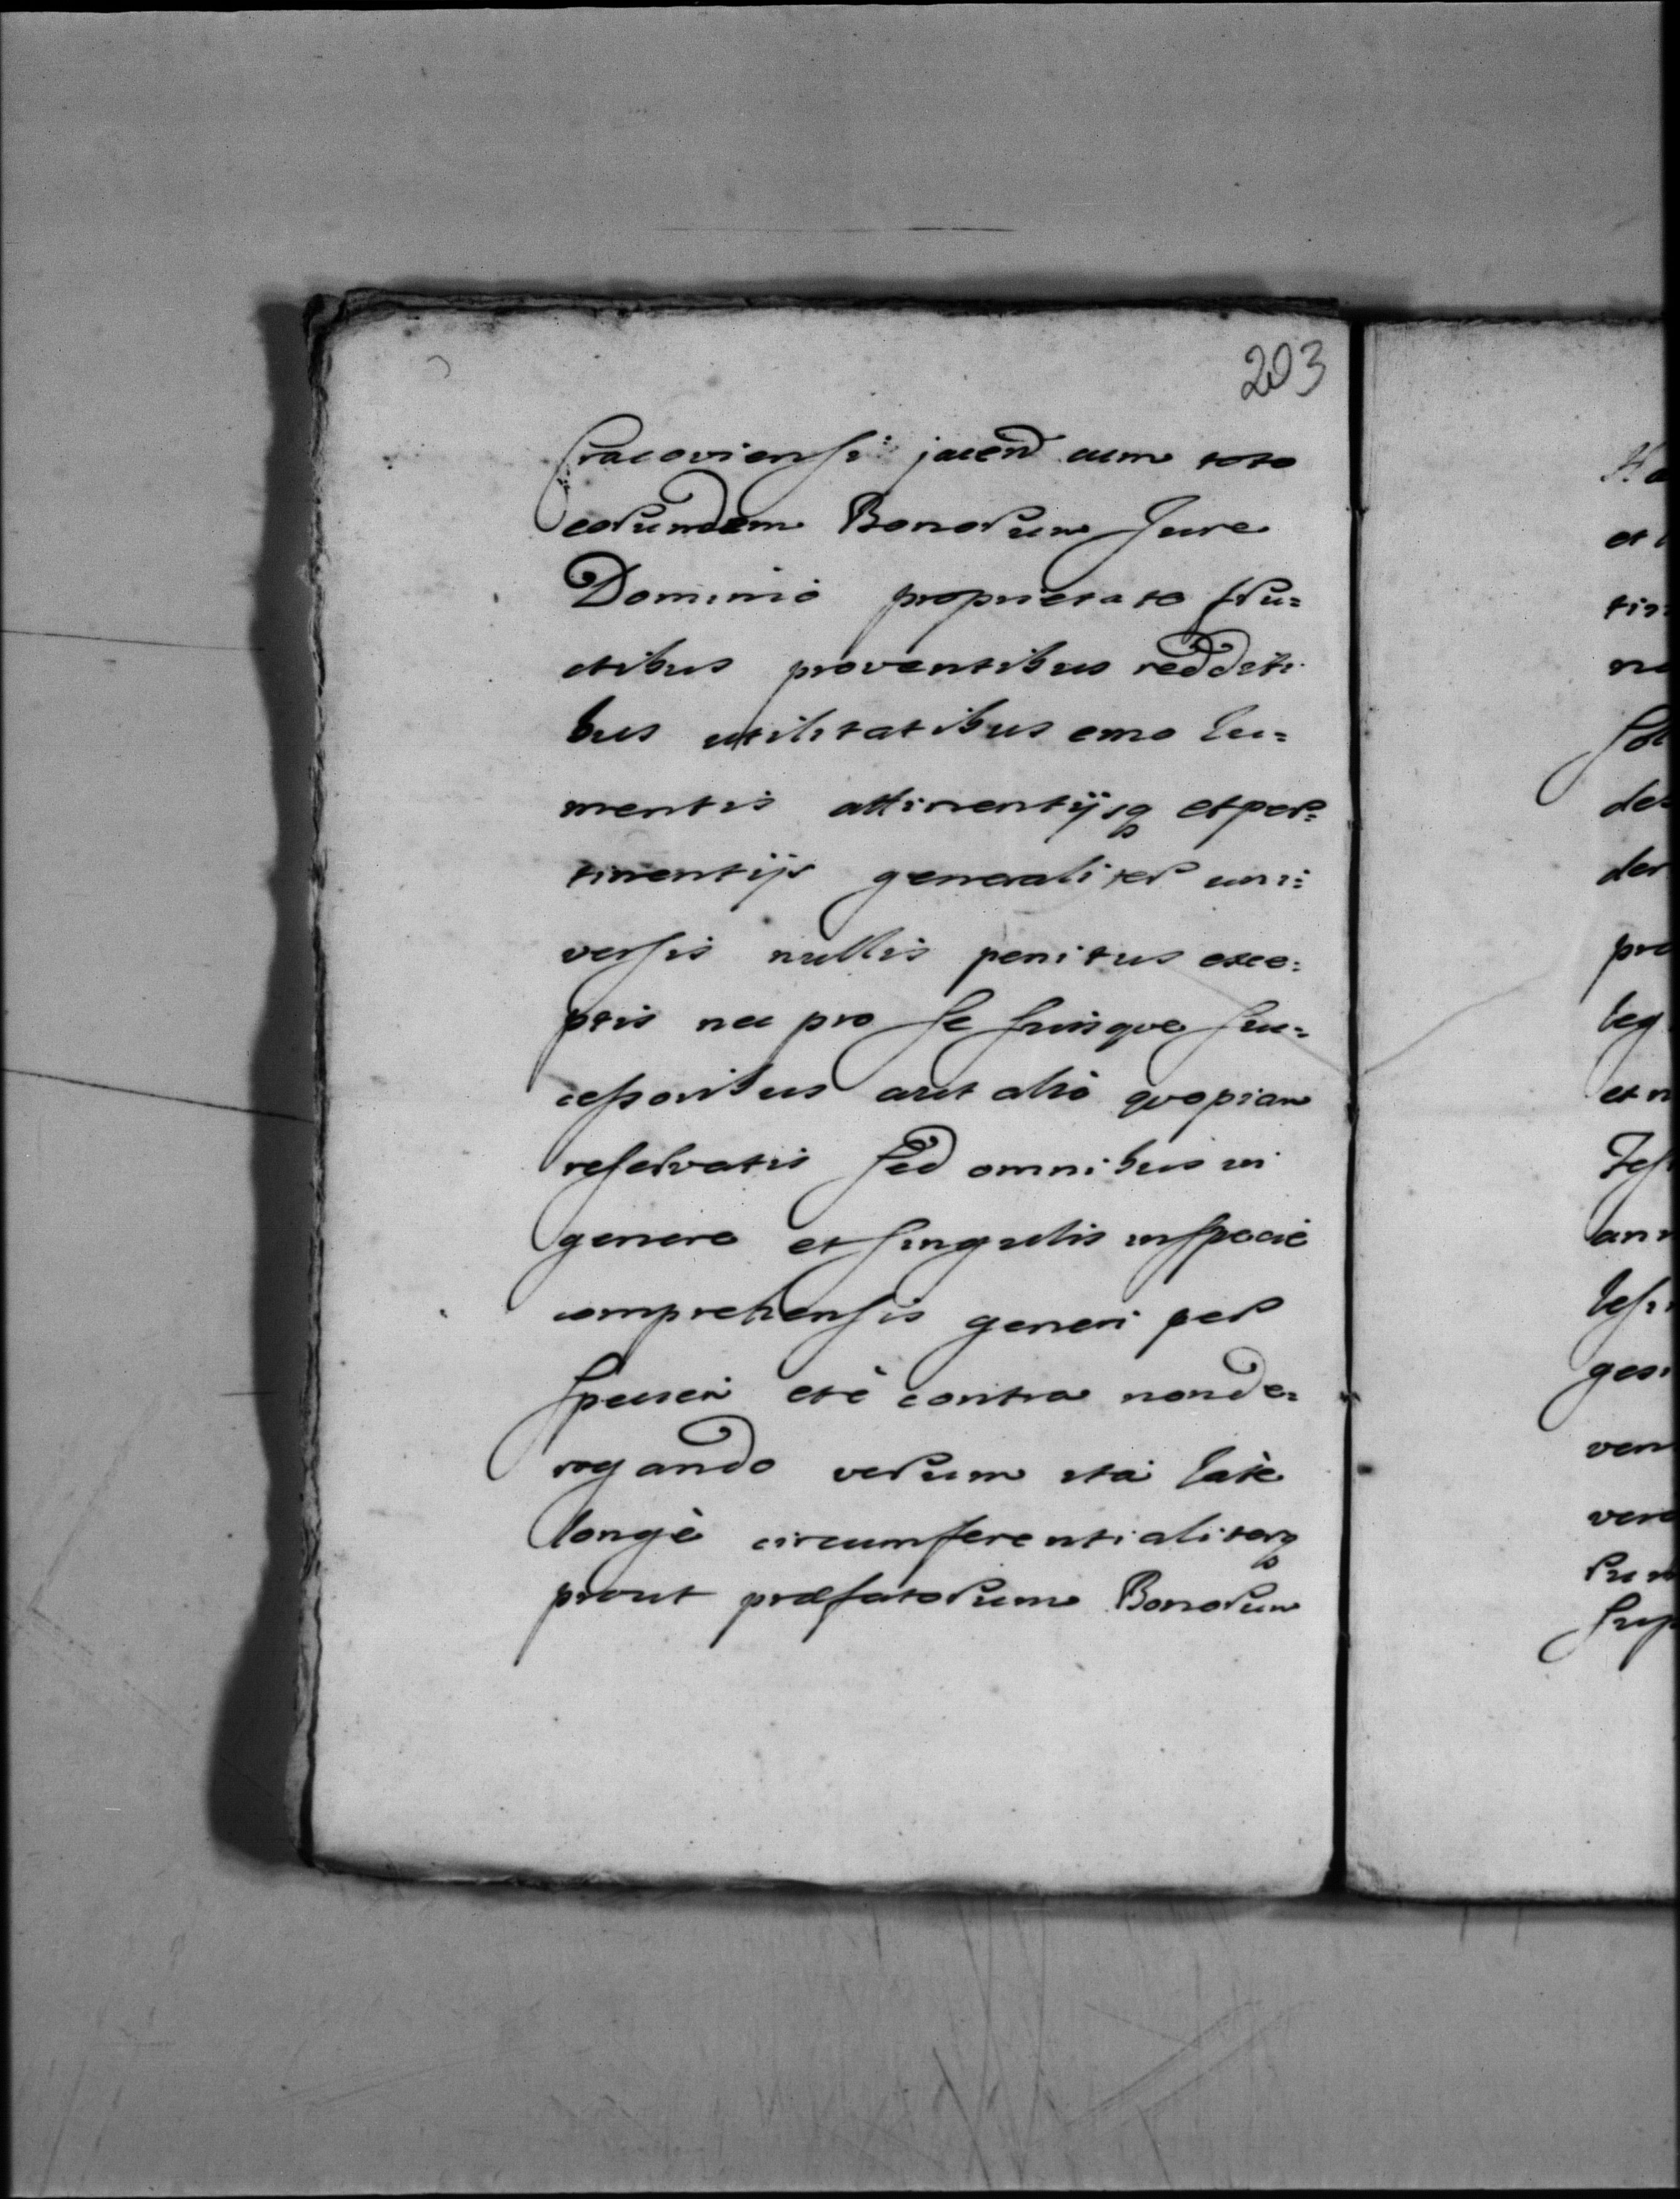 203
Cracoviensi jacen cum toto
eorundem Bonorum Jure
Dominio proprietate fru=
ctibus proventibus redditi
bus utilitatibus emo lu=
mentis attinentijsq et per=
tinentijs generaliter uni=
versis nullis penitus exce=
ptis nec pro se suisque suc=
cessoribus aut alio quopiam
reservatis sed omnibus in
genere et singulis in specie
comprehensis generi per
speciem et è contra non de=
rogando verum ita latè
longè circumferentialiterq
prout præfatorum Bonorum
et
tin
ne
des
der
pro
leg
et n
ges
ven
vero